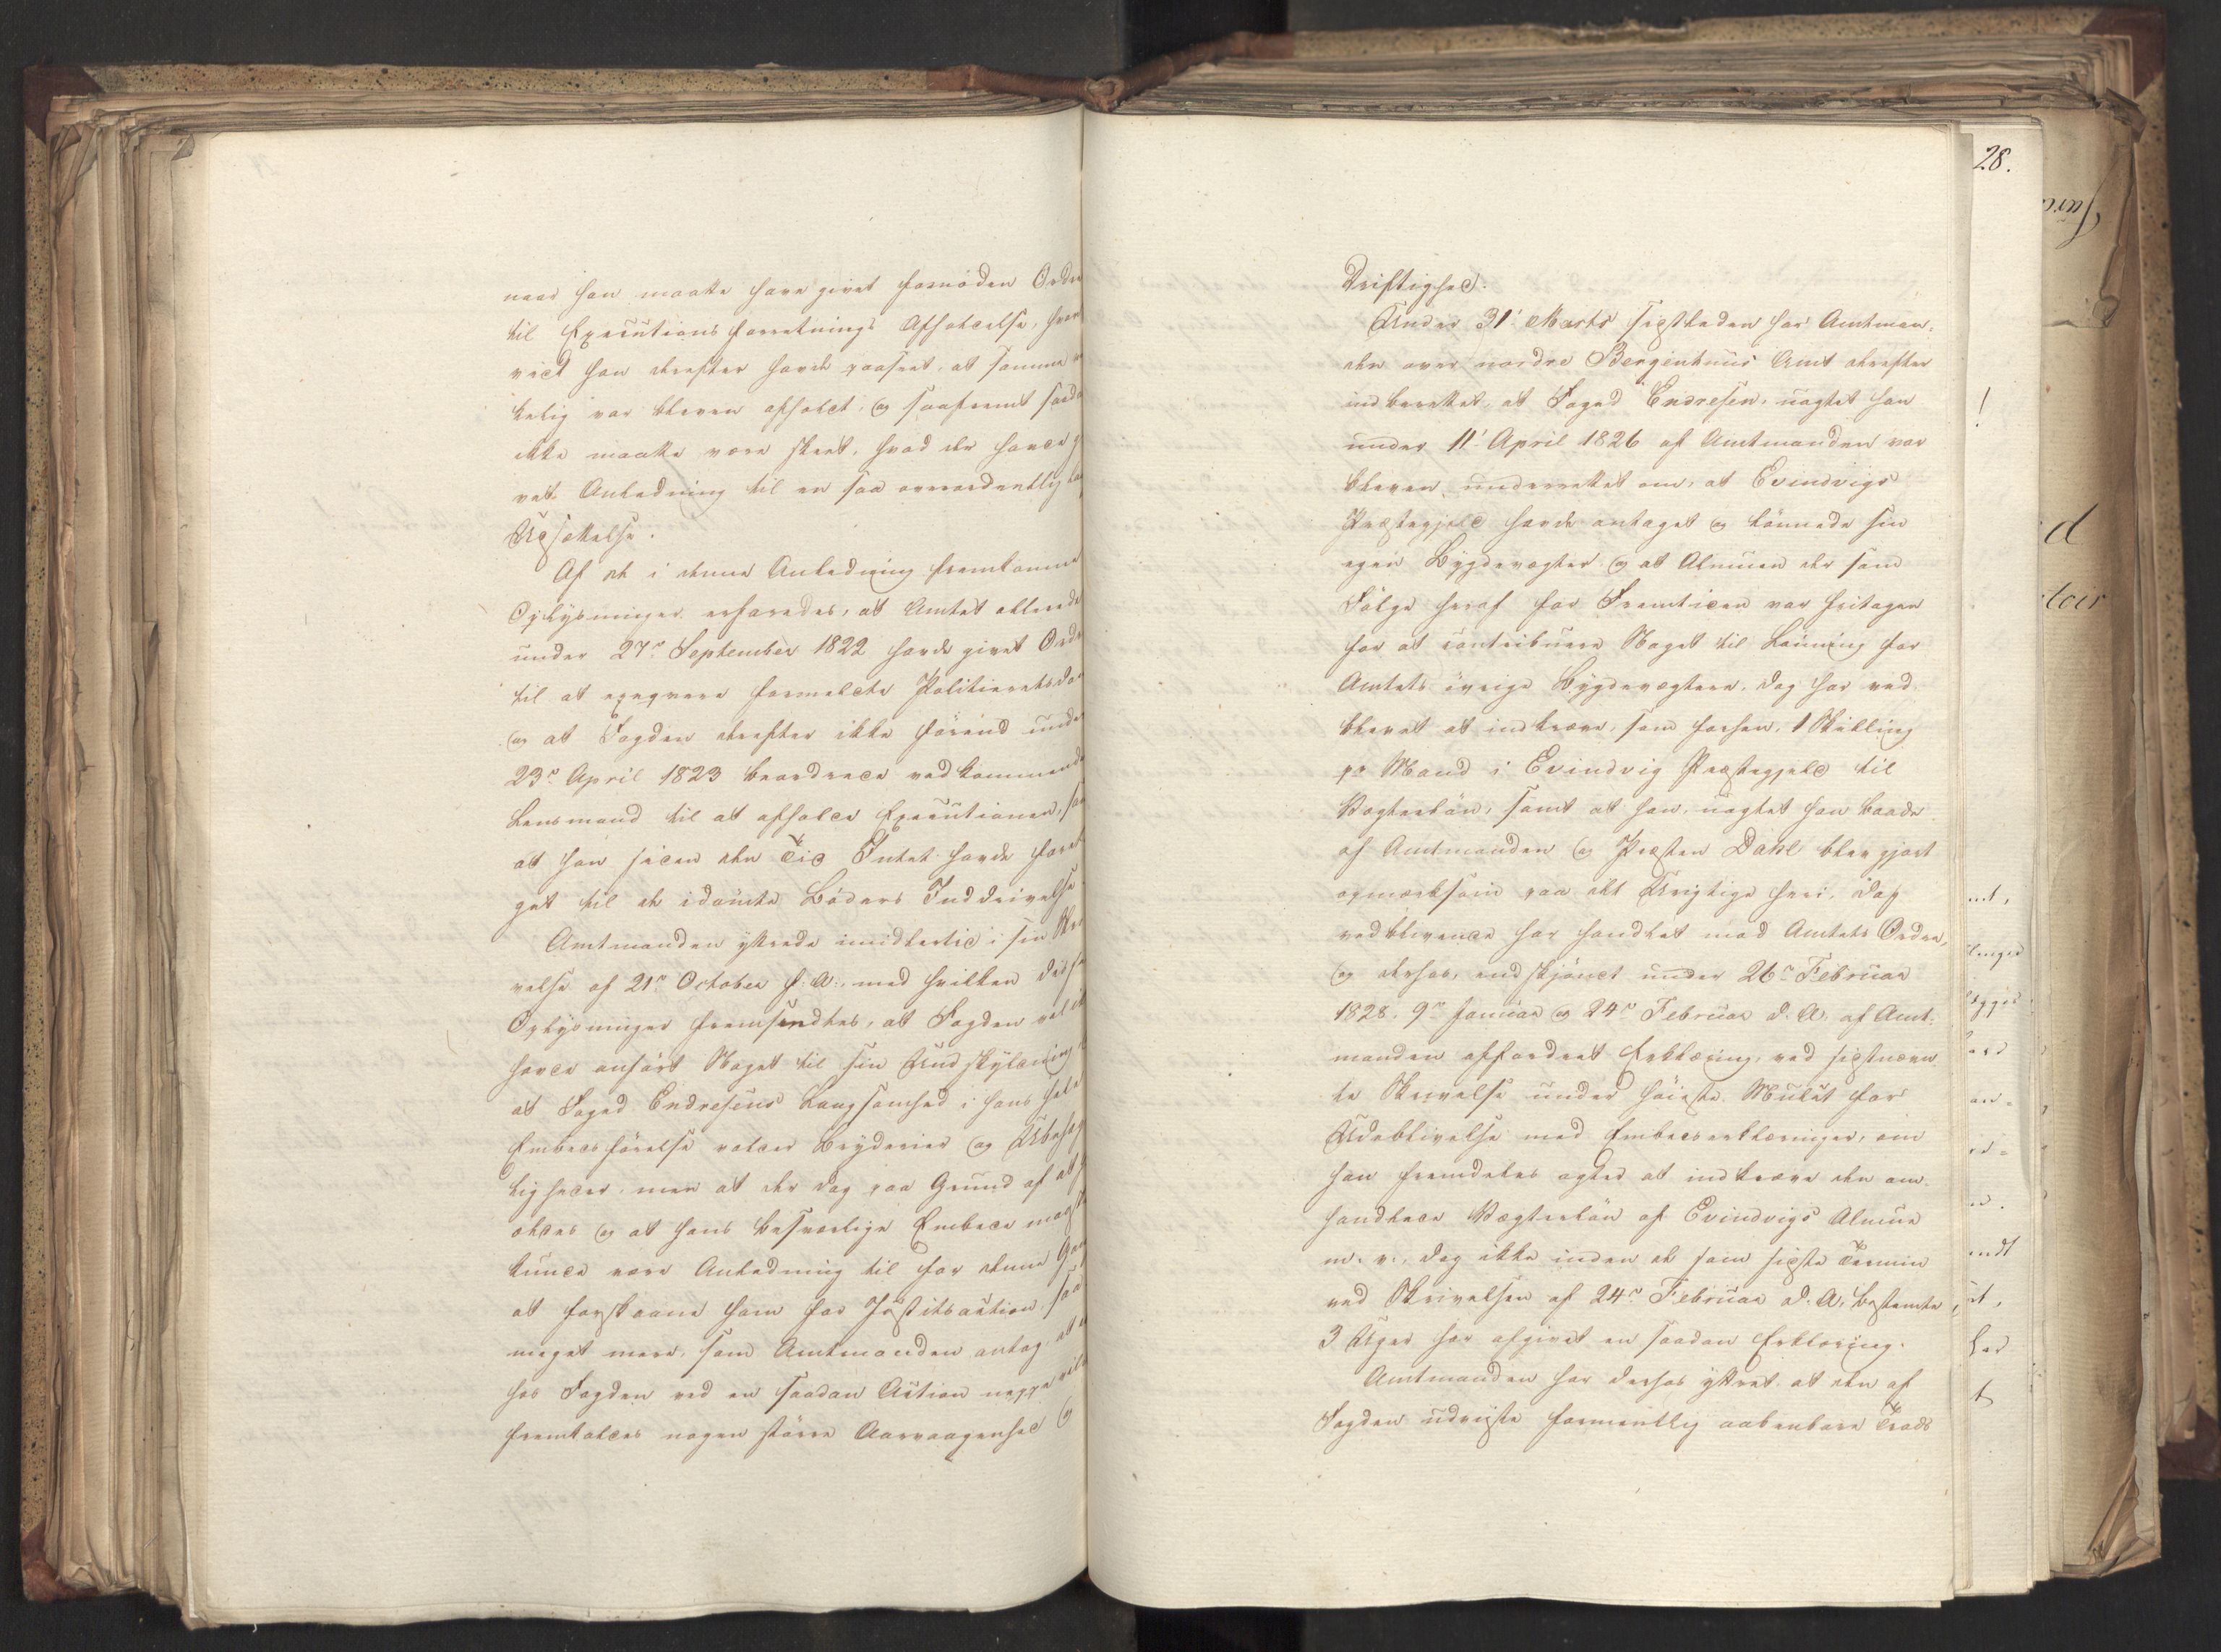 naar han maatte have givet fornöden Ordre
til Executionsforretnings Afholdelse, hvor
vidt han derefter havde paaseet, at samme
belig var bleven afholdt, og saafremt saada
ikke maatte være skeet, hvad der havde g
vet Anledning til en saa overordentlig lan
Udsættelse.
Af de i denne Anledning fremkomne
Oplysninger erfaredes, at Amtet allerede
under 27de September 1822 havde givet Ordr
til at exeqvere formeldte Politieretsdom
og at Fogden derefter ikke förend under
23de April 1823 beordrede vedkommende
Lensmand til at afholde Executionen, sam
at han siden den Tid Intet havde foreta
get til de idömte Böders Inddrivelse.
Amtmanden yttrede imidlertid i sin Skri
velse af 21de October f. A., med hvilken disse
Oplysninger fremsendtes, at Fogden vel ik
havde anfört Noget til sin Undskyldning
at Foged Endresens Langsomhed i hans hele
Embedsförelse volder Bryderier og Ubehag
ligheder, men at der dog paa Grund af at h
ældes og at hans besværlige Embede maas
kunde være Anledning til for denne Gan
at forskaane ham for Justitsaction, saa
meget mere, som Amtmanden antog, at d
hos Fogden ved en saadan Action neppe vil
fremkaldes nogen större Aarvaagenhed og
28.
Driftighed.
Under 31' Marts sidstleden har Amtman-
den over nordre Bergenhuus Amt derefter
indberettet, at Foged Endresen, uagtet han
under 11' April 1826 af Amtmanden var
bleven underrettet om, at Evindvigs
Præstegjeld havde antaget og lönnede sin
egen Bygdevægter og at Almuen der som
Fölge heraf for Fremtiden var fritagen
for at contribuere Noget til Lönning for
Amtets övrige Bygdevægtere, dog har ved
blevet at indkræve, som forhen, 1 Skilling
pr Mand i Evindvig Præstegjeld til
Vægterlön, samt at han, uagtet han baade
af Amtmanden og Præsten Dahl blev gjort
opmærksom paa det Urigtige heri, dog
vedblivende har handlet mod Amtets Ordre,
og derhos, endskjöndt under 26de Februar
1828, 9de Januar og 24de Februar d. A. af Amt-
manden affordret Erklæring, ved sidstnævn
te Skrivelse under höieste Mulct for
Udeblivelse med Embedserklæringer, om
han fremdeles agted at indkræve den om-
handlede Vægterlön af Evindvigs Almue
m. v., dog ikke inden de som sidste Termin
ved Skrivelsen af 24de Februar d. A. bestemte
3 Uger har afgivet en saadan Erklæring.
Amtmanden har derhos yttret at den af
Fogden udviste formentlig aabenbare Trods